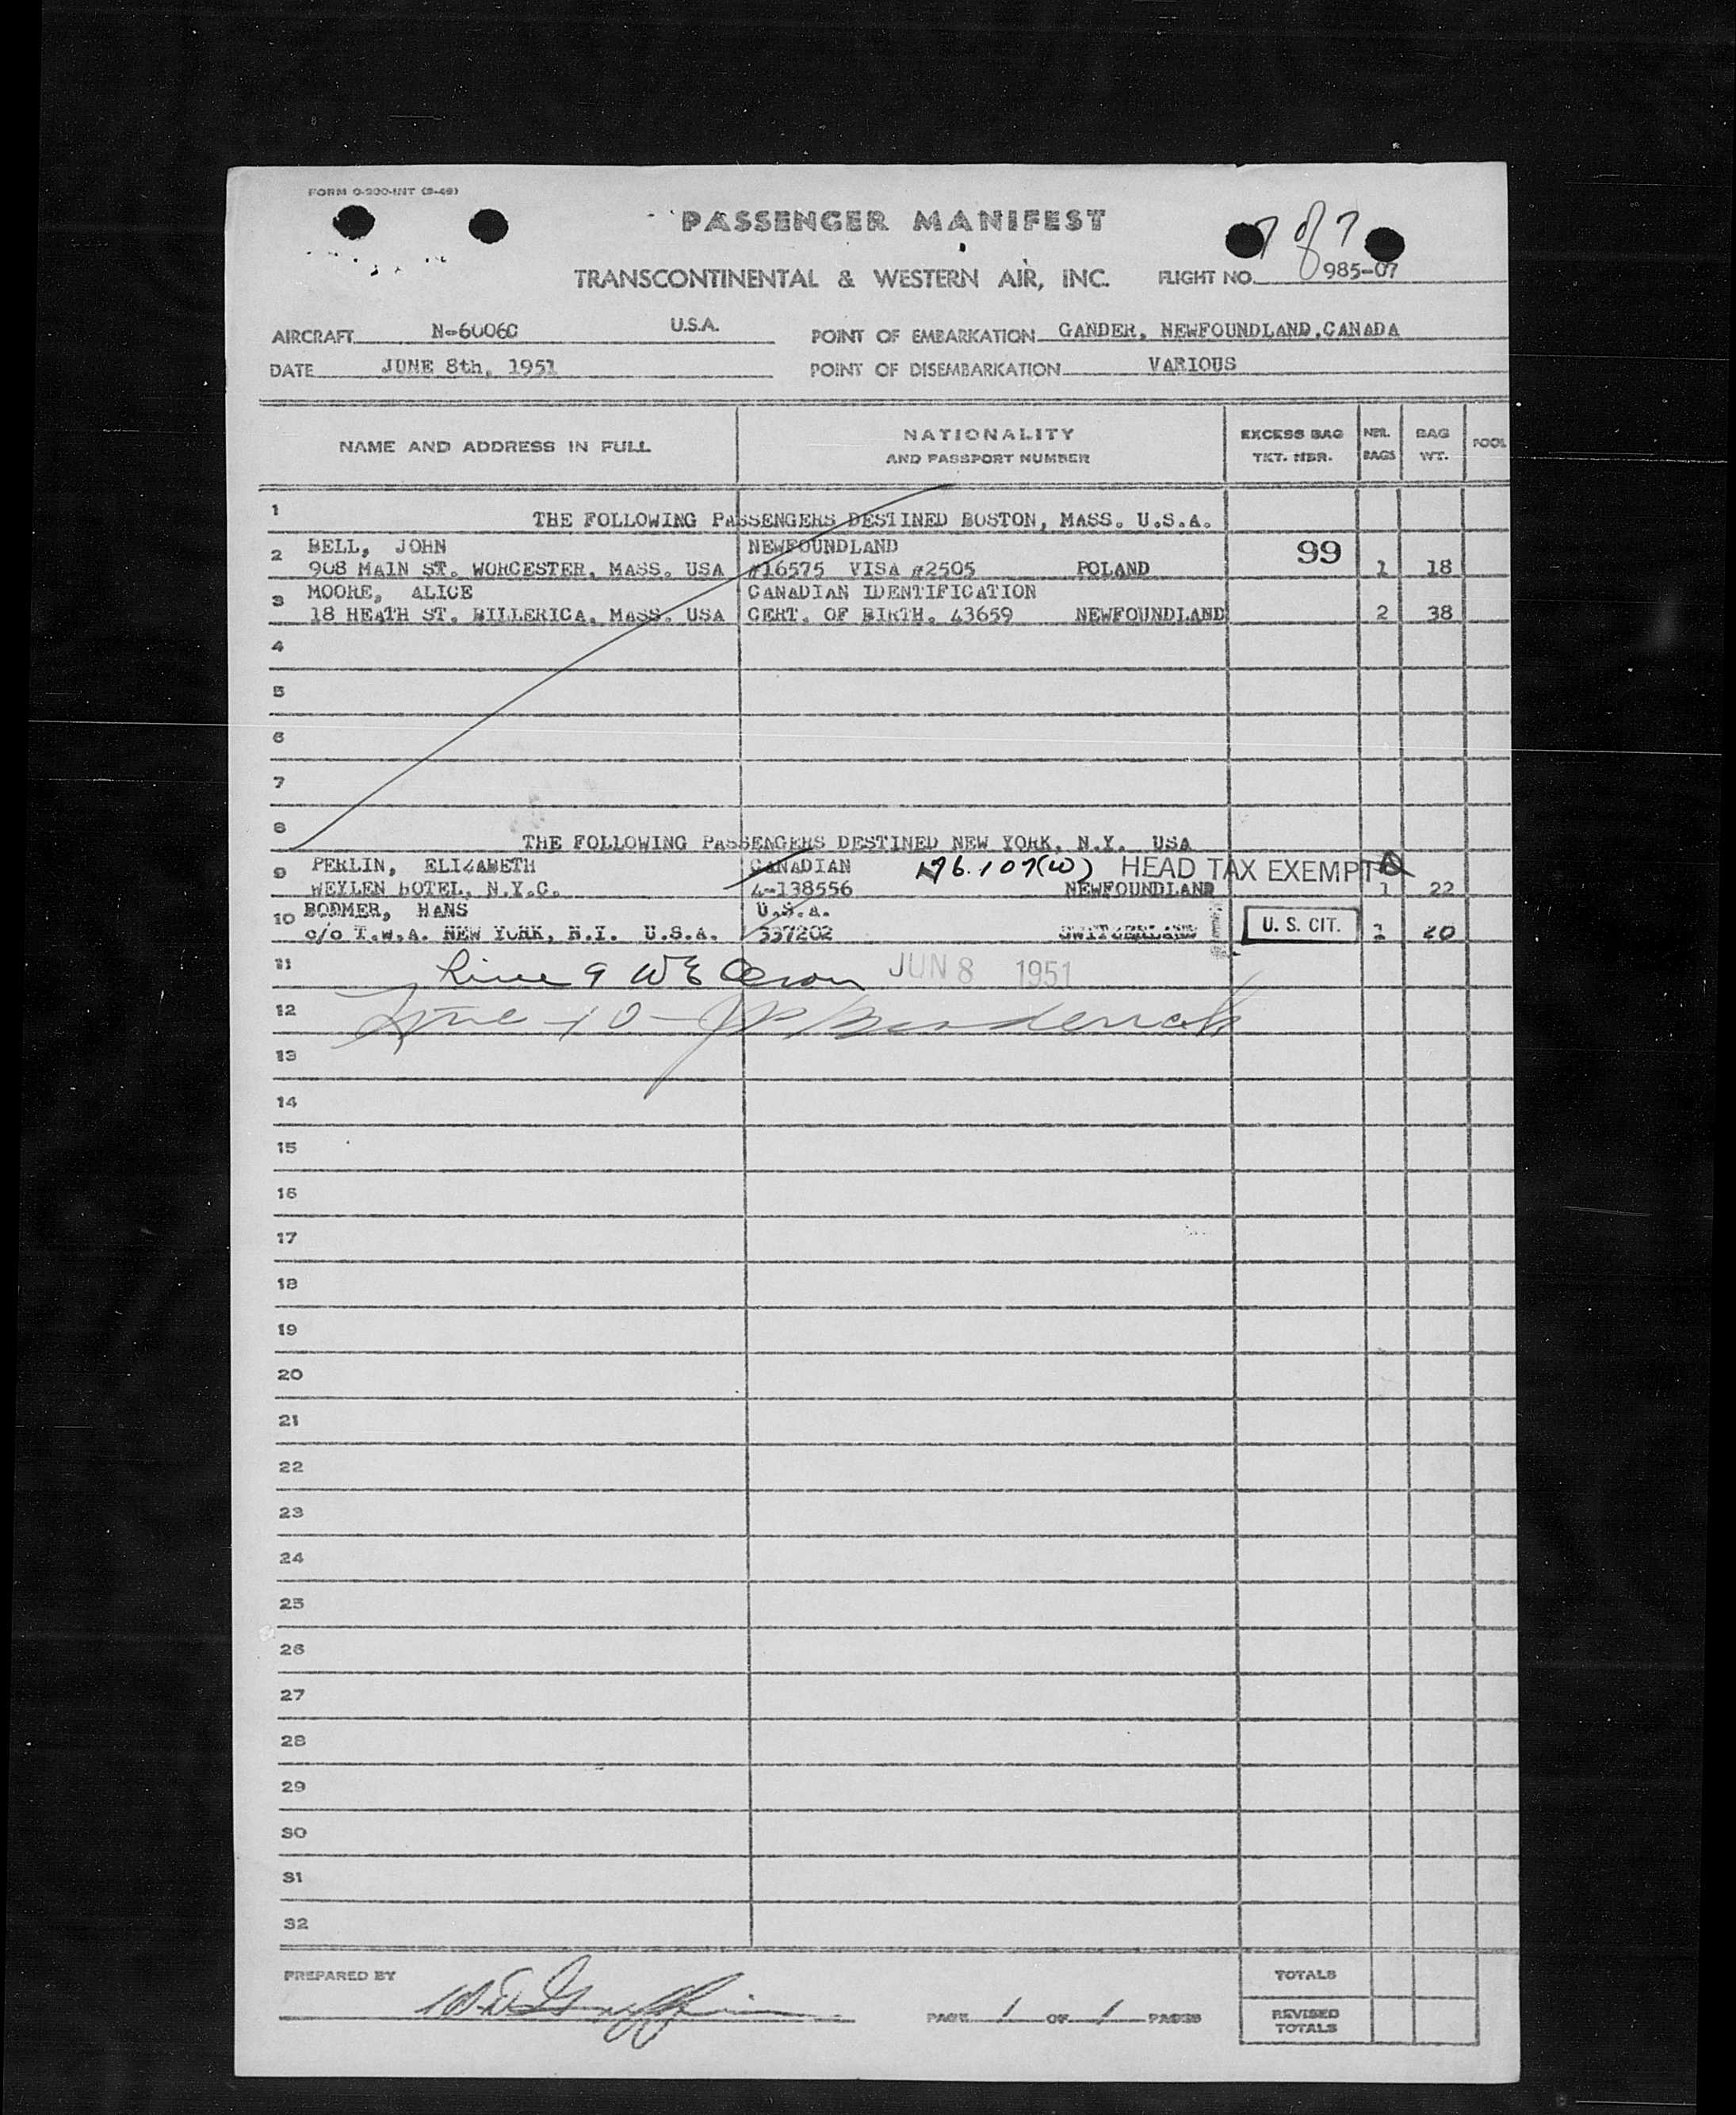 FORM O-200-INT (3-46)
PASSENGER MANIFEST
7 of 7
TRANSCONTINENTAL & WESTERN AIR, INC. FLIGHT NO. 985-07
AIRCRAFT N-6006C U.S.A. POINT OF EMBARKATION GANDER, NEWFOUNDLAND,CANADA
DATE JUNE 8th, 1951 POINT OF DISEMBARKATION VARIOUS
NAME AND ADDRESS IN FULL NATIONALITY AND PASSPORT NUMBER EXCESS BAG TKT. NBR. NBR. BAGS BAG WT. POOL
1 THE FOLLOWING PASSENGERS DESTINED BOSTON, MASS. U.S.A.
2 BELL, JOHN NEWFOUNDLAND 99
908 MAIN ST. WORCESTER, MASS. USA #16575 VISA #2505 POLAND 1 18
3 MOORE, ALICE CANADIAN IDENTIFICATION
18 HEATH ST. BILLERICA, MASS. USA CERT. OF BIRTH. 43659 NEWFOUNDLAND 2 38
4
5
6
7
8 THE FOLLOWING PASSENGERS DESTINED NEW YORK, N.Y. USA
9 PERLIN, ELIZABETH CANADIAN 176.107(W) HEAD TAX EXEMPT
WEYLEN HOTEL, N.Y.C. 4-138556 NEWFOUNDLAND 1 22
10 BODMER, HANS U.S.A.
c/o T.W.A. NEW YORK, N.Y. U.S.A. 337202 SWITZERLAND U. S. CIT. 1 20
11 Line 9 JUN 8 1951
12 Line 10
13
14
15
16
17
18
19
20
21
22
23
24
25
26
27
28
29
30
31
32
PREPARED BY PAGE 1 OF 1 PAGES
TOTALS
REVISED TOTALS